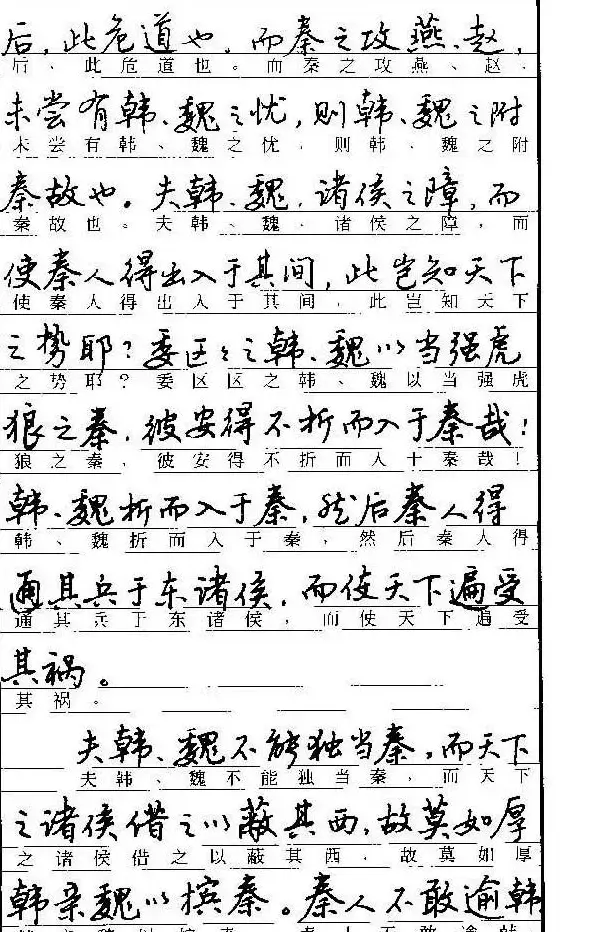 后，此危道也。而秦之攻燕、赵，
后、此危道也。而秦之攻燕、赵、
未尝有韩、魏之忧，则韩、魏之附
未尝有韩、魏之忧，则韩、魏之附
秦故也。夫韩、魏，诸侯之障，而
秦故也。夫韩、魏，诸侯之障，而
使秦人得出入于其间，此岂知天下
使秦人得出入于其间，此岂知天下
之势耶？委区々之韩、魏以当强虎
之势耶？委区区之韩、魏以当强虎
狼之秦，彼安得不折而入于秦哉！
狼之秦，彼安得不折而入于秦哉！
韩、魏折而入于秦，然后秦人得
韩、魏折而入于秦，然后秦人得
通其兵于东诸侯，而使天下遍受
通其兵于东诸侯，而使天下遍受
其祸。
其祸。
夫韩、魏不能独当秦，而天下
夫韩、魏不能独当秦，而天下
之诸侯借之以蔽其西，故莫如厚
之诸侯借之以蔽其西，故莫如厚
韩亲魏以摈秦。秦人不敢逾韩